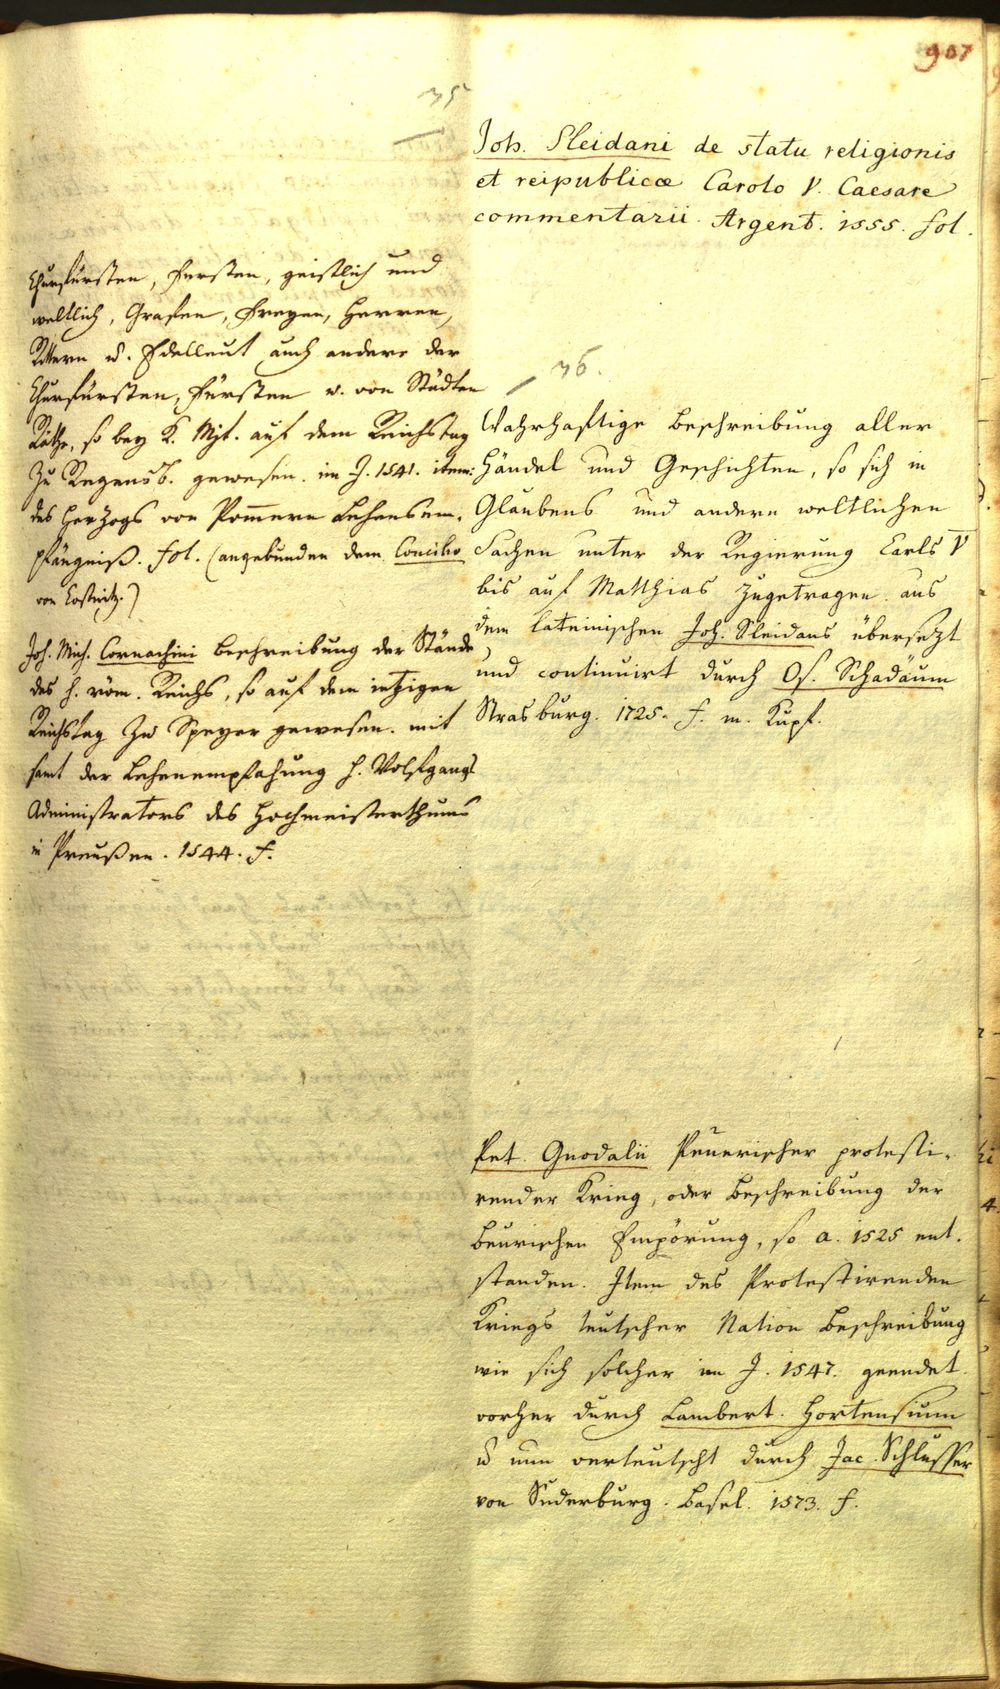 907
35
Joh. Sleidani de statu religionis
et reipublicæ Carolo V. Caesare
commentarii. Argent. 1555. fol.
Churfürsten, Fursten, geistlich und
weltlich, Grafen, Freyen, Herren,
Rittern u. Edelleut auch andere der
Churfürsten, Fürsten u. von Städten
Räthe, so bey K. Mjt. auf dem Reichstag
zu Regensb. gewesen. im J. 1541. item:
des Herzogs von Pom̄ern Lehensem-
pfängniß. fol. (angebunden dem Concilio
von Costnitz.)
Joh. Mich. Cornachini Beschreibung der Stände
des h. röm. Reichs, so auf dem ietzigen
Reichstag zu Speyer gewesen. mit
samt der Lehenempfahung H. Wolfgangs
Administrators des Hochmeisterthums
in Preußen. 1544. f.
36.
Wahrhaftige Beschreibung aller
Händel und Geschichten, so sich in
Glaubens und andern weltlichen
Sachen unter der Regierung Carls V
bis auf Matthias zugetragen aus
dem lateinischen Joh. Sleidans übersezt
und continuirt durch Os. Schadäum
Strasburg. 1725. f. m. Kupf.
Pet. Gnodalii Peuerischer protesti-
render Krieg, oder Beschreibung der
Beurischen Empörung, so a. 1525 ent-
standen. Item des Protestirenden
Kriegs teutscher Nation Beschreibung
wie sich solcher im J. 1547. geendet
vorher durch Lambert. Hortensium
u nun verteutscht durch Jac. Schlusser
von Suderburg. Basel. 1573. f.